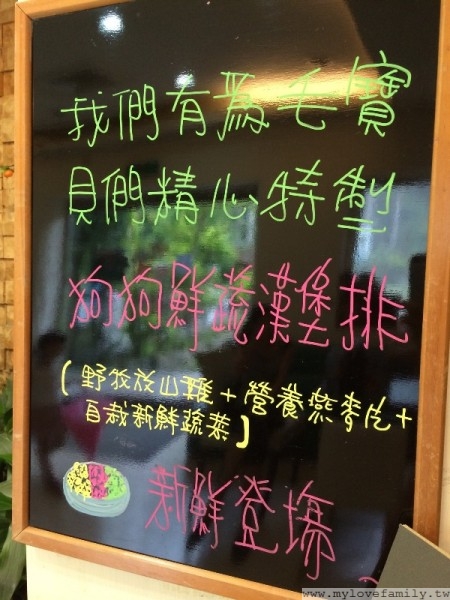 我們有為毛寶
貝們精心特製
狗狗鮮蔬漢堡排
(野牧放山雞+營養燕麥片+
自栽新鮮蔬菜)
新鮮登場
www.mylovefamily.tw